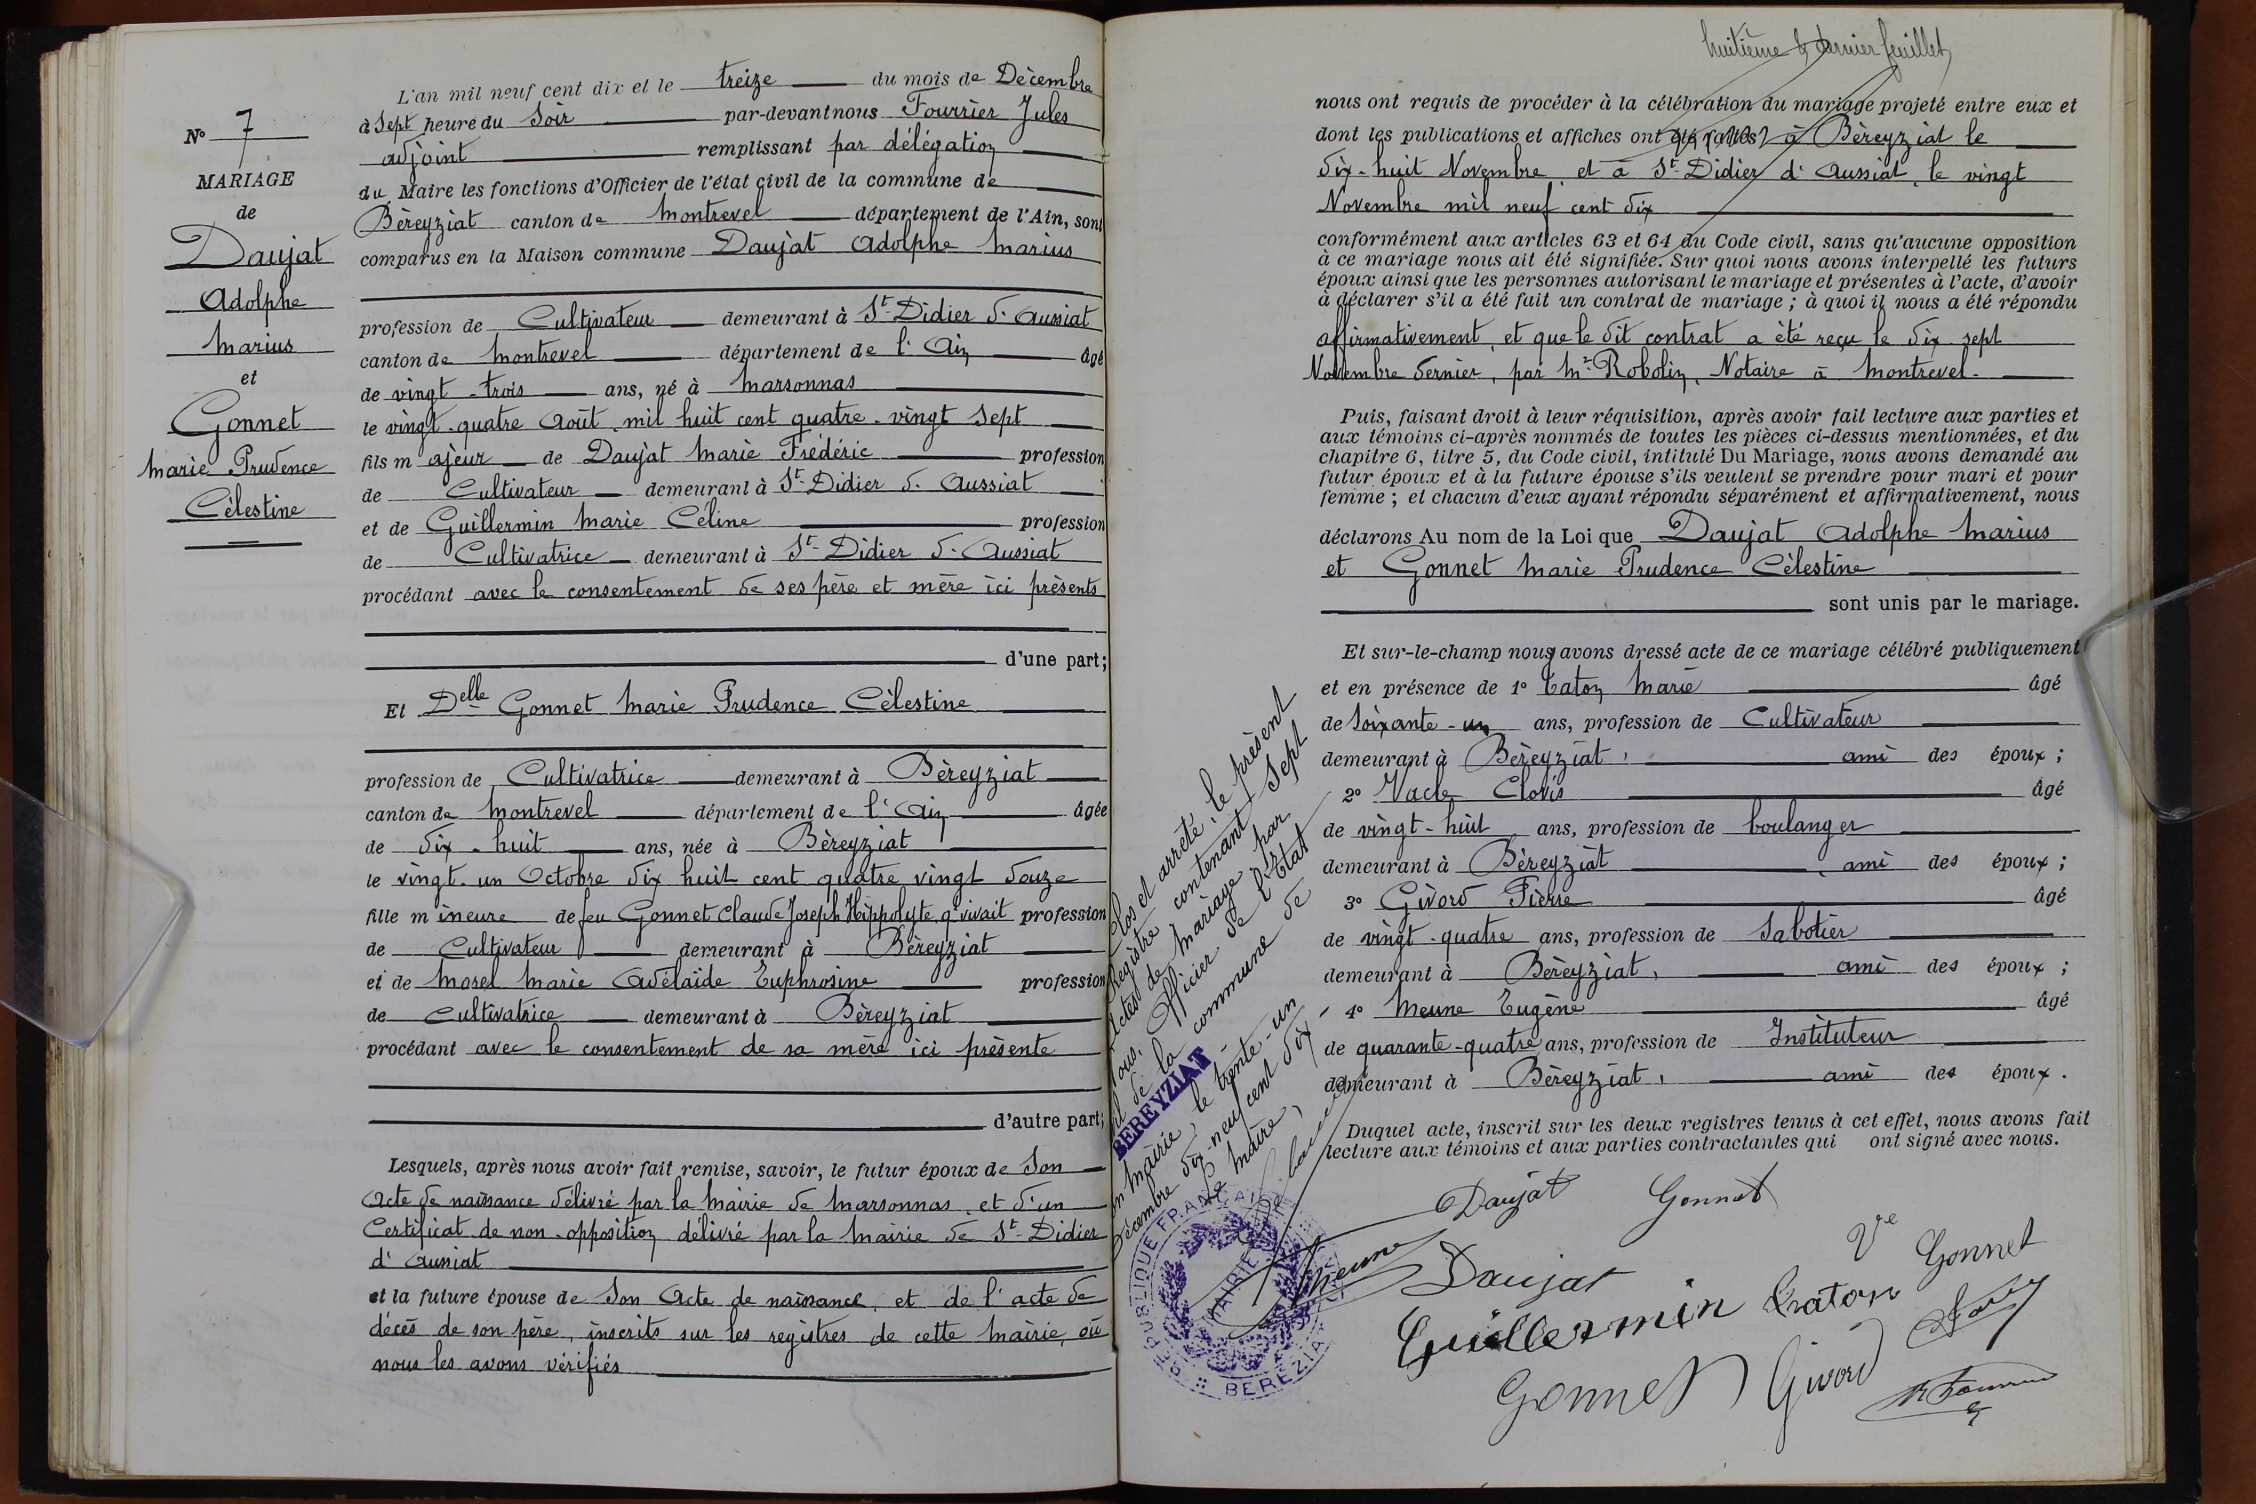 N° 7
MARIAGE
de
Daujat
Adolphe
Marius
et
Gonnet
Marie Prudence
Célestine
L'an mil neuf cent dix et le treize du mois de Décembre
à Sept heure du Soir par-devant nous Fourrier Jules
adjoint remplissant par délégation
du Maire les fonctions d'Officier de l'état civil de la commune de
Béreyziat canton de Montrevel département de l'Ain, sont
comparus en la Maison commune Daujat Adolphe Marius
profession de Cultivateur demeurant à St-Didier d'Aussiat
canton de Montrevel département de l'Ain âgé
de vingt-trois ans, né à Marsonnas
le vingt-quatre Août mil huit cent quatre-vingt sept
fils majeur de Daujat Marie Frédéric profession
de Cultivateur demeurant à St-Didier d'Aussiat
et de Guillermin Marie Céline profession
de Cultivatrice demeurant à St-Didier d'Aussiat
procédant avec le consentement de ses père et mère ici présents
d'une part;
Et Delle Gonnet Marie Prudence Célestine
profession de Cultivatrice demeurant à Béreyziat
canton de Montrevel département de l'Ain âgée
de dix-huit ans, née à Béreyziat
le vingt-un Octobre dix huit cent quatre vingt douze
fille mineure de feu Gonnet Claude Joseph Hippolyte, q. vivait profession
de Cultivateur demeurant à Béreyziat
et de Morel Marie Adélaïde Euphrosine profession
de Cultivatrice demeurant à Béreyziat
procédant avec le consentement de sa mère ici présente
d'autre part;
Lesquels, après nous avoir fait remise, savoir, le futur époux de Son
Acte de naissance délivré par la Mairie de Marsonnas, et d'un
Certificat de non-opposition délivré par la Mairie de St-Didier
d'Aussiat
et la future épouse de Son Acte de naissance, et de l'acte de
décès de son père, inscrits sur les registres de cette Mairie, où
nous les avons vérifiés
huitième & dernier feuillet
nous ont requis de procéder à la célébration du mariage projeté entre eux et
dont les publications et affiches ont été faites à Béreyziat le
dix-huit Novembre et à St-Didier d'Aussiat, le vingt
Novembre mil neuf cent dix
conformément aux articles 63 et 64 du Code civil, sans qu'aucune opposition
à ce mariage nous ait été signifiée. Sur quoi nous avons interpellé les futurs
époux ainsi que les personnes autorisant le mariage et présentes à l'acte, d'avoir
à déclarer s'il a été fait un contrat de mariage; à quoi il nous a été répondu
affirmativement, et que le dit contrat a été reçu le dix sept
Novembre dernier, par Me Robolin, Notaire à Montrevel.
Puis, faisant droit à leur réquisition, après avoir fait lecture aux parties et
aux témoins ci-après nommés de toutes les pièces ci-dessus mentionnées, et du
chapitre 6, titre 5, du Code civil, intitulé Du Mariage, nous avons demandé au
futur époux et à la future épouse s'ils veulent se prendre pour mari et pour
femme; et chacun d'eux ayant répondu séparément et affirmativement, nous
déclarons Au nom de la Loi que Daujat Adolphe Marius
et Gonnet Marie Prudence Célestine
sont unis par le mariage.
Et sur-le-champ nous avons dressé acte de ce mariage célébré publiquement
et en présence de 1° Caton Marie âgé
de Soixante-un ans, profession de Cultivateur
demeurant à Béreyziat, ami des époux;
2° Vacle Clovis âgé
de vingt-huit ans, profession de boulanger
demeurant à Béreyziat, ami des époux;
3° Givord Pierre âgé
de vingt-quatre ans, profession de Sabotier
demeurant à Béreyziat, ami des époux;
4° Meune Eugène âgé
de quarante-quatre ans, profession de Instituteur
demeurant à Béreyziat, ami des époux.
Duquel acte, inscrit sur les deux registres tenus à cet effet, nous avons fait
lecture aux témoins et aux parties contractantes qui ont signé avec nous.
Daujat Gonnet
Vve Gonnet
Meune Daujat
Guillermin Craton
Gonnet Givord
Clos et arrêté, le présent
Registre contenant Sept
Actes de Mariage par
Nous, Officier de l'Etat
civil de la commune de
BEREYZIAT
En Mairie, le trente-un
Décembre dix-neuf cent dix
Le Maire,
REPUBLIQUE FRANÇAISE
MAIRIE
BEREZIAT